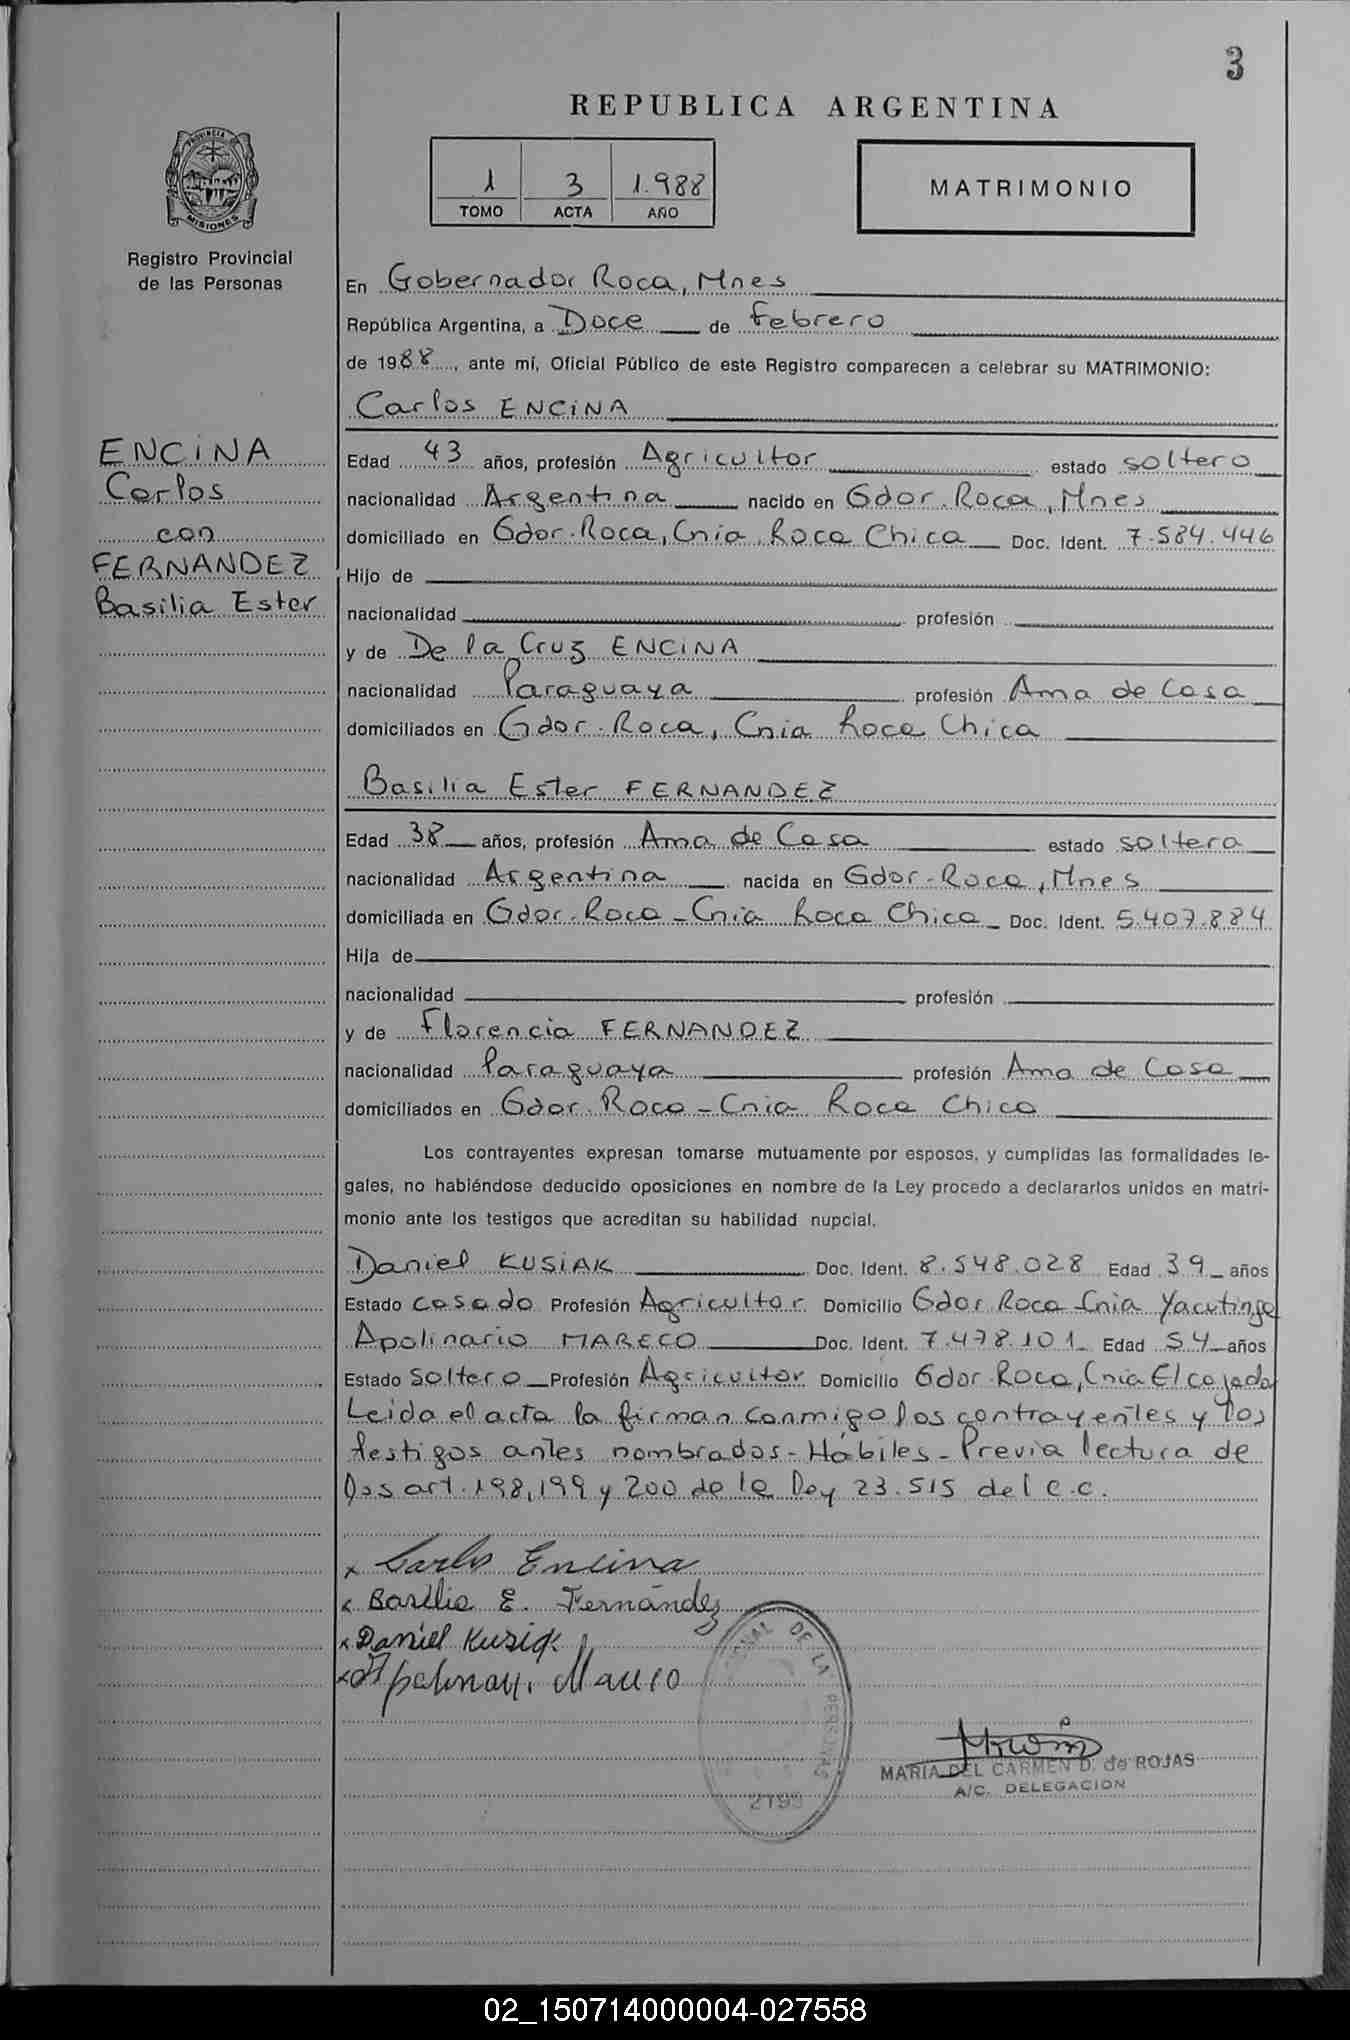 3
REPUBLICA ARGENTINA
1 3 1.988
TOMO ACTA AÑO
MATRIMONIO
PROVINCIA DE
MISIONES
Registro Provincial
de las Personas
ENCINA
Carlos
con
FERNANDEZ
Basilia Ester
En Gobernador Roca, Mnes
República Argentina, a Doce de Febrero
de 1988, ante mí, Oficial Público de este Registro comparecen a celebrar su MATRIMONIO:
Carlos ENCINA
Edad 43 años, profesión Agricultor estado soltero
nacionalidad Argentina nacido en Gdor. Roca, Mnes
domiciliado en Gdor. Roca, Cnia. Roca Chica Doc. Ident. 7.584.446
Hijo de
nacionalidad profesión
y de De la Cruz ENCINA
nacionalidad Paraguaya profesión Ama de Casa
domiciliados en Gdor. Roca, Cnia Roca Chica
Basilia Ester FERNANDEZ
Edad 38 años, profesión Ama de Casa estado soltera
nacionalidad Argentina nacida en Gdor. Roca, Mnes
domiciliada en Gdor. Roca - Cnia Roca Chica Doc. Ident. 5.407.884
Hija de
nacionalidad profesión
y de Florencia FERNANDEZ
nacionalidad Paraguaya profesión Ama de Casa
domiciliados en Gdor. Roca - Cnia Roca Chica
Los contrayentes expresan tomarse mutuamente por esposos, y cumplidas las formalidades le-
gales, no habiéndose deducido oposiciones en nombre de la Ley procedo a declararlos unidos en matri-
monio ante los testigos que acreditan su habilidad nupcial.
Daniel KUSIAK Doc. Ident. 8.548.028 Edad 39 años
Estado casado Profesión Agricultor Domicilio Gdor. Roca Cnia Yacutinga
Apolinario MARECO Doc. Ident. 7.478.101 Edad 54 años
Estado soltero Profesión Agricultor Domicilio Gdor. Roca, Cnia El
Leida el acta la firman conmigo los contrayentes y los
testigos antes nombrados - Hábiles - Previa lectura de
los art. 198, 199 y 200 de la Ley 23.515 del C.C.
x Carlos Encina
x Basilia E. Fernández
x Daniel Kusiak
x
DE LA
2193
MARIA DEL CARMEN D. de ROJAS
A/C. DELEGACION
02_150714000004-027558